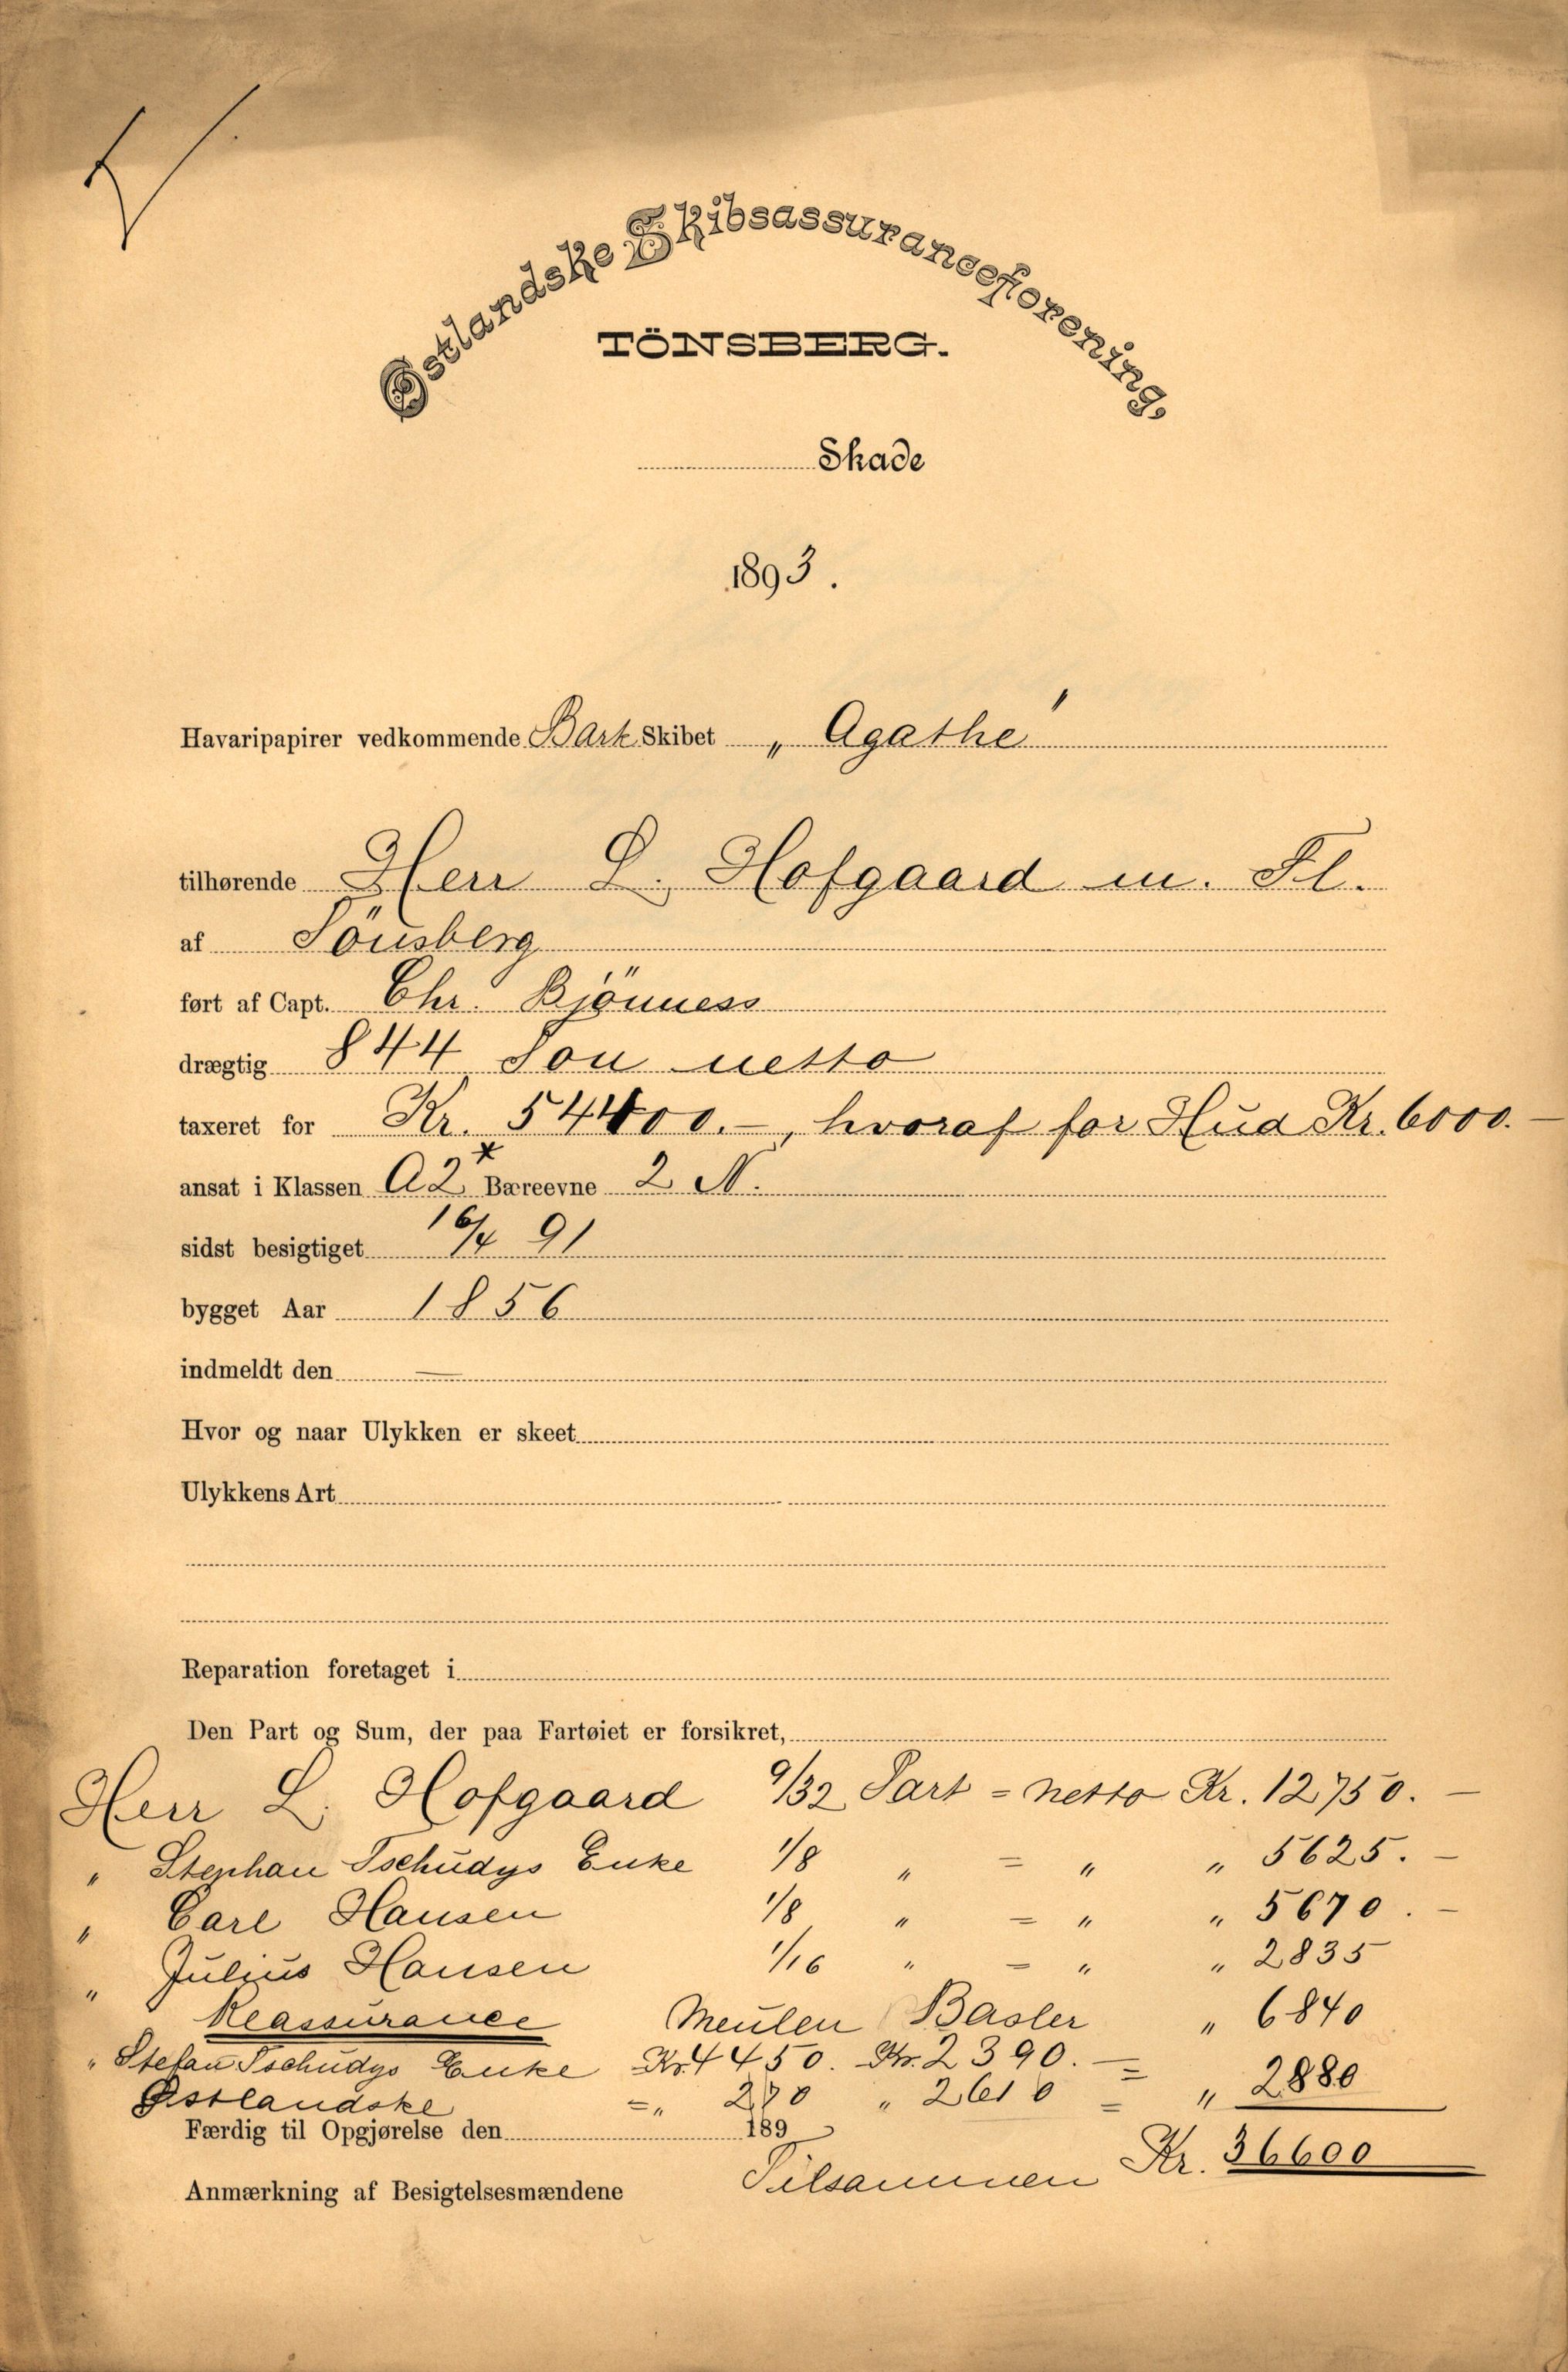 Østlandske Skibsassuranceforening,
TÖNSBERG.
Skade
1893.
Havaripapirer vedkommende Bark Skibet „ Agathe"
tilhørende Herr L. Hofgaard m. Fl.
af Tönsberg
ført af Capt. Chr. Bjönness
drægtig 844 Ton netto
taxeret for Kr. 54400.-, hvoraf for Hud Kr. 6000.-
ansat i Klassen A2* Bæreevne 2 N.
sidst besigtiget 16/4 91
bygget Aar 1856
indmeldt den —
Hvor og naar Ulykken er skeet
Ulykkens Art
Reparation foretaget i
Den Part og Sum, der paa Fartøiet er forsikret,
Herr L. Hofgaard 9/32 Part = netto Kr. 12750.-
„ Stephan Tschudys Enke 1/8 „ = „ „ 5625.-
„ Carl Hansen 1/8 „ = „ „ 5670.-
„ Julius Hansen 1/16 „ = „ „ 2835
Reassurance Meulen Basler „ 6840
„ Stefan Tschudys Enke Kr. 4450. Kr. 2390.-
Østlandske = „ 270 „ 2610 = „ 2880
Færdig til Opgjørelse den 189
Tilsammen Kr. 36600
Anmærkning af Besigtelsesmændene